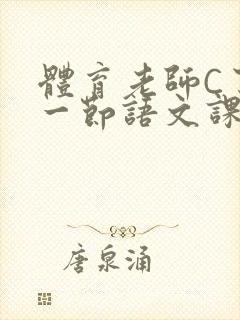 體育老師C
一節語文課
唐泉涌